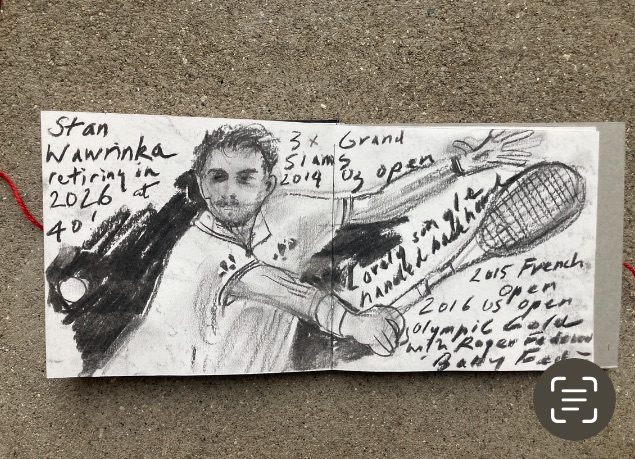 Stan
Wawrinka
retiring in
2026 at
40!
3x Grand
Slams
2014 US Open
Lovely single
handed backhand
2015 French
Open
2016 US Open
Olympic Gold
with Roger Federer
'Baby Fed'